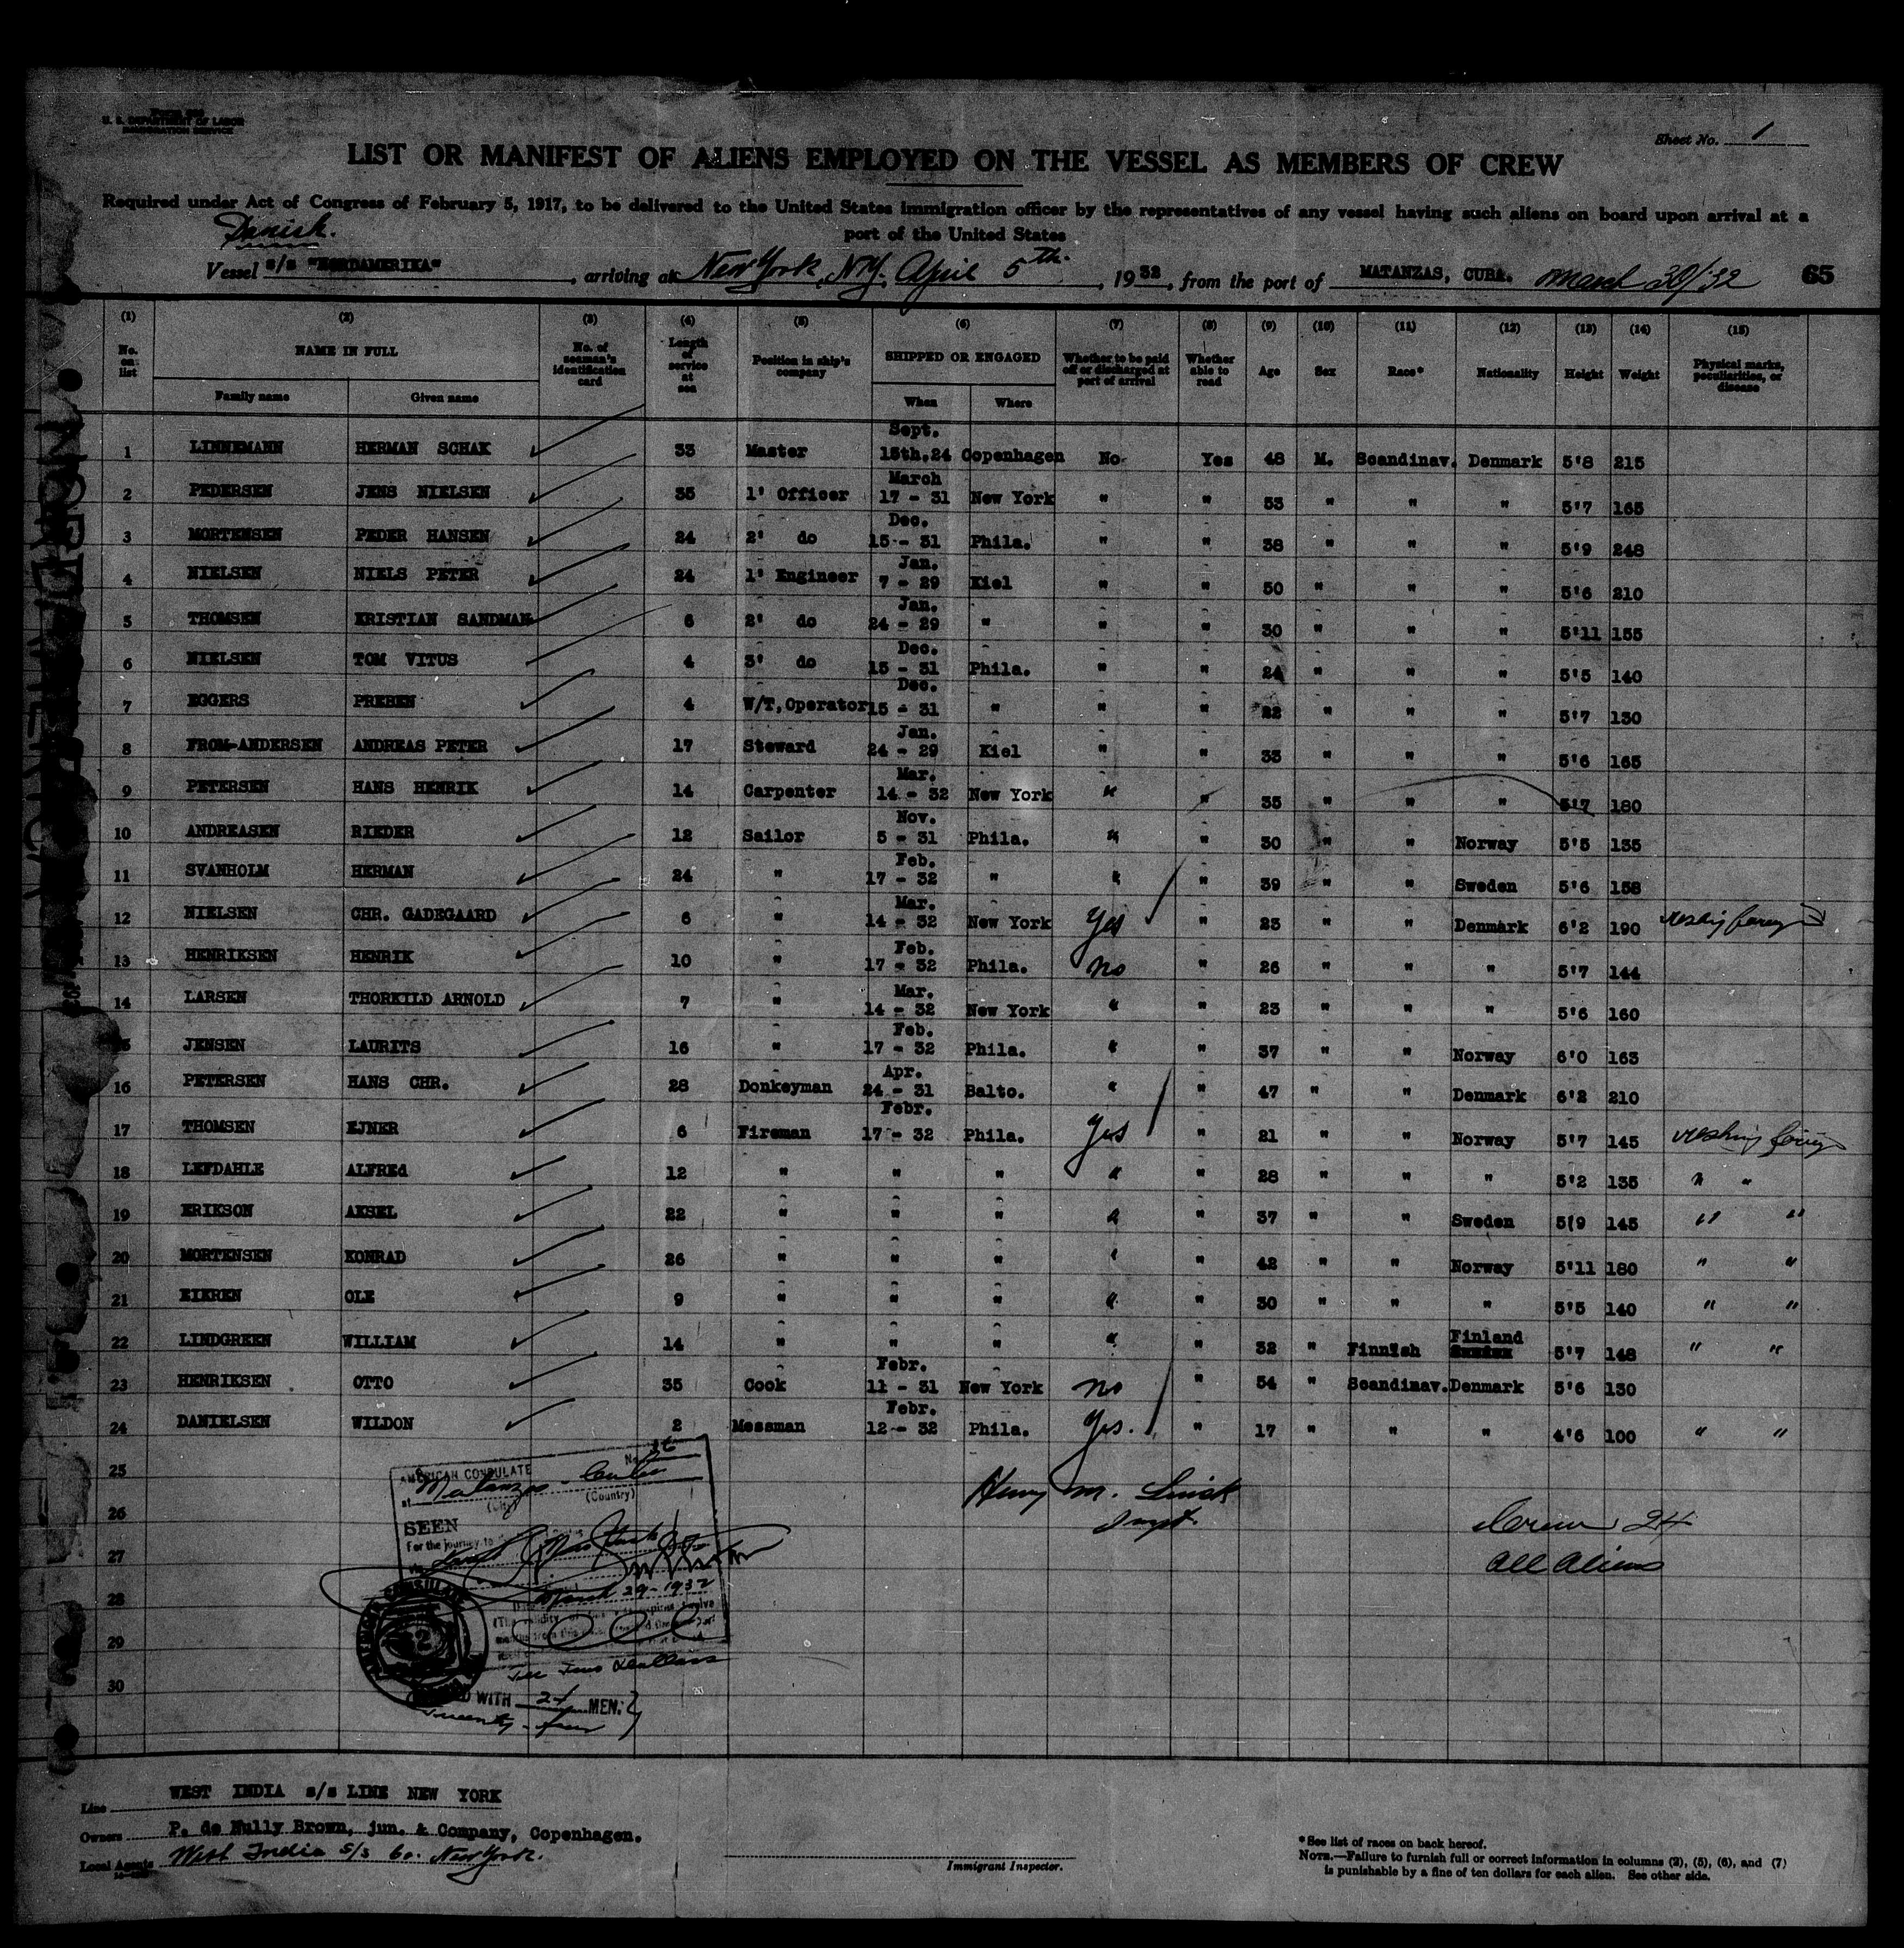 U. S. DEPARTMENT OF LABOR
IMMIGRATION SERVICE
Sheet No. 1
LIST OR MANIFEST OF ALIENS EMPLOYED ON THE VESSEL AS MEMBERS OF CREW
Required under Act of Congress of February 5, 1917, to be delivered to the United States immigration officer by the representatives of any vessel having such aliens on board upon arrival at a
port of the United States
Danish.
Vessel s/s "NORDAMERIKA", arriving at New York, N.Y. April 5th., 1932, from the port of MATANZAS, CUBA. March 30/32 65
(1) (2) (3) (4) (5) (6) (7) (8) (9) (10) (11) (12) (13) (14) (15)
No. on list NAME IN FULL No. of seaman's identification card Length of service at sea Position in ship's company SHIPPED OR ENGAGED Whether to be paid off or discharged at port of arrival Whether able to read Age Sex Race* Nationality Height Weight Physical marks, peculiarities, or disease
Family name Given name When Where
1 LINNEMANN HERMAN SCHAK 33 Master Sept. 15th.24 Copenhagen No Yes 48 M. Scandinav. Denmark 5'8 215
2 PEDERSEN JENS NIELSEN 35 1' Officer March 17 - 31 New York " " 53 " " " 5'7 165
3 MORTENSEN PEDER HANSEN 24 2' do Dec. 15 - 31 Phila. " " 38 " " " 5'9 248
4 NIELSEN NIELS PETER 24 1' Engineer Jan. 7 - 29 Kiel " " 50 " " " 5'6 210
5 THOMSEN KRISTIAN SANDMAN 6 2' do Jan. 24 - 29 " " " 30 " " " 5'11 155
6 NIELSEN TOM VITUS 4 3' do Dec. 15 - 31 Phila. " " 24 " " " 5'5 140
7 EGGERS PREBEN 4 W/T,Operator Dec. 15 - 31 " " " 22 " " " 5'7 130
8 FROM-ANDERSEN ANDREAS PETER 17 Steward Jan. 24 - 29 Kiel " " 33 " " " 5'6 165
9 PETERSEN HANS HENRIK 14 Carpenter Mar. 14 - 32 New York " " 35 " " " 5'7 180
10 ANDREASEN RIEDER 12 Sailor Nov. 5 - 31 Phila. " " 30 " " Norway 5'5 135
11 SVANHOLM HERMAN 24 " Feb. 17 - 32 " " " 39 " " Sweden 5'6 158
12 NIELSEN CHR. GADEGAARD 6 " Mar. 14 - 32 New York Yes " 23 " " Denmark 6'2 190
13 HENRIKSEN HENRIK 10 " Feb. 17 - 32 Phila. no " 26 " " " 5'7 144
14 LARSEN THORKILD ARNOLD 7 " Mar. 14 - 32 New York " " 23 " " " 5'6 160
15 JENSEN LAURITS 16 " Feb. 17 - 32 Phila. " " 37 " " Norway 6'0 163
16 PETERSEN HANS CHR. 28 Donkeyman Apr. 24 - 31 Balto. " " 47 " " Denmark 6'2 210
17 THOMSEN EJNER 6 Fireman Febr. 17 - 32 Phila. Yes " 21 " " Norway 5'7 145
18 LEFDAHLE ALFREd 12 " " " " " 28 " " " 5'2 135 " "
19 ERIKSON AKSEL 22 " " " " " 37 " " Sweden 5'9 145 " "
20 MORTENSEN KONRAD 26 " " " " " 42 " " Norway 5'11 180 " "
21 EIEREN OLE 9 " " " " " 30 " " " 5'5 140 " "
22 LINDGREEN WILLIAM 14 " " " " " 32 " Finnish Finland 5'7 148 " "
23 HENRIKSEN OTTO 35 Cook Febr. 11 - 31 New York no " 54 " Scandinav. Denmark 5'6 130
24 DANIELSEN WILDON 2 Messman Febr. 12 - 32 Phila. Yes. " 17 " " " 4'6 100 " "
25
26
27
28
29
30
AMERICAN CONSULATE
at Matanzas Cuba
(City) (Country)
SEEN
For the journey to
March 29-1932
Fee Two Dollars
WITH 24 MEN.
Twenty-four
Henry M.
Inspt.
Crew 24
All Aliens
Line WEST INDIA s/s LINE NEW YORK
Owners P. de Nully Brown, jun. & Company, Copenhagen.
Local Agents West India S/S Co. New York.
Immigrant Inspector.
*See list of races on back hereof.
NOTE.—Failure to furnish full or correct information in columns (2), (5), (6), and (7)
is punishable by a fine of ten dollars for each alien. See other side.